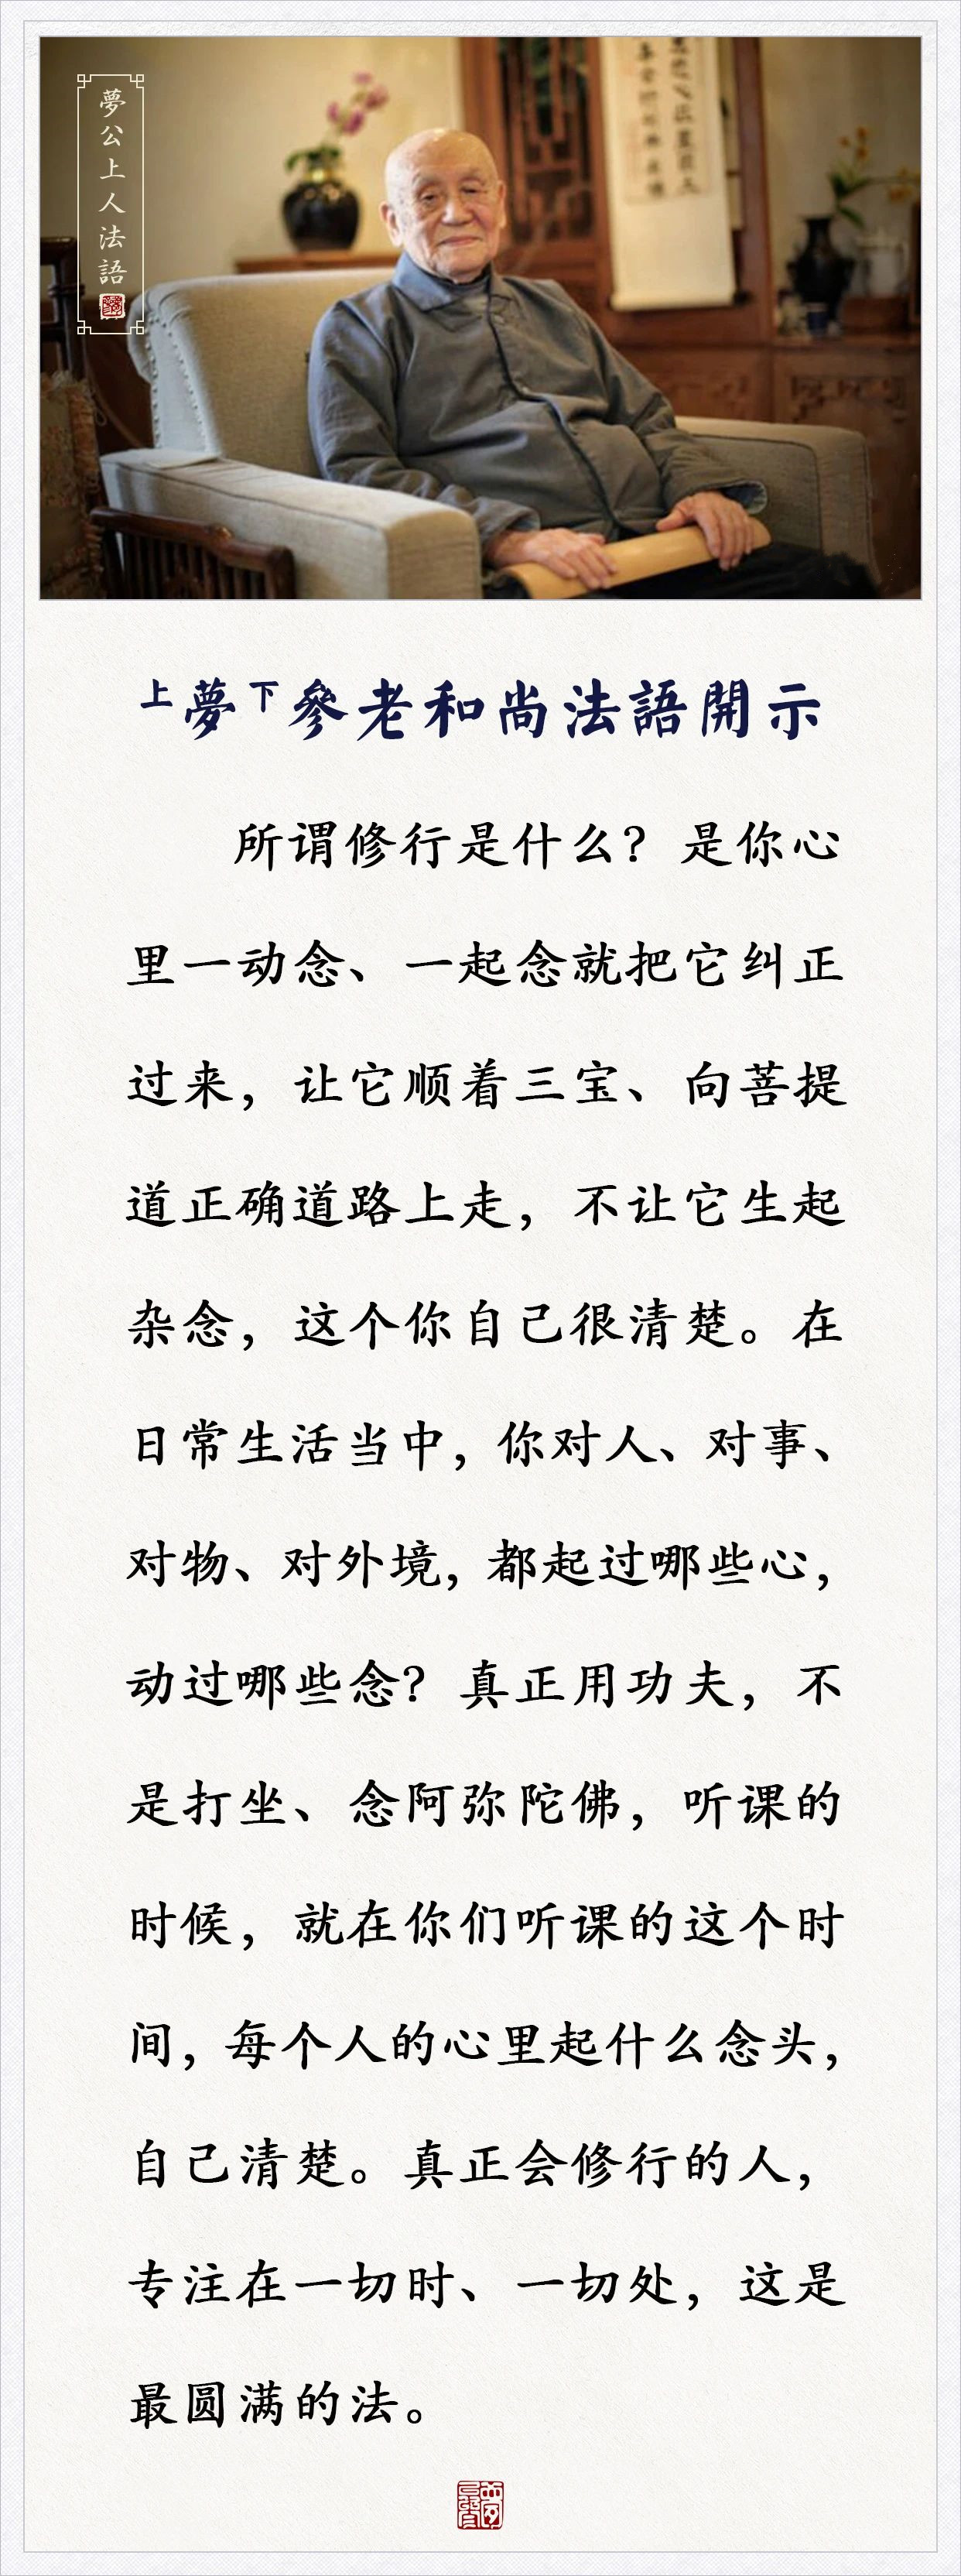 夢公上人法語
上夢下參老和尚法語開示
所谓修行是什么？是你心
里一动念、一起念就把它纠正
过来，让它顺着三宝、向菩提
道正确道路上走，不让它生起
杂念，这个你自己很清楚。在
日常生活当中，你对人、对事、
对物、对外境，都起过哪些心，
动过哪些念？真正用功夫，不
是打坐、念阿弥陀佛，听课的
时候，就在你们听课的这个时
间，每个人的心里起什么念头，
自己清楚。真正会修行的人，
专注在一切时、一切处，这是
最圆满的法。